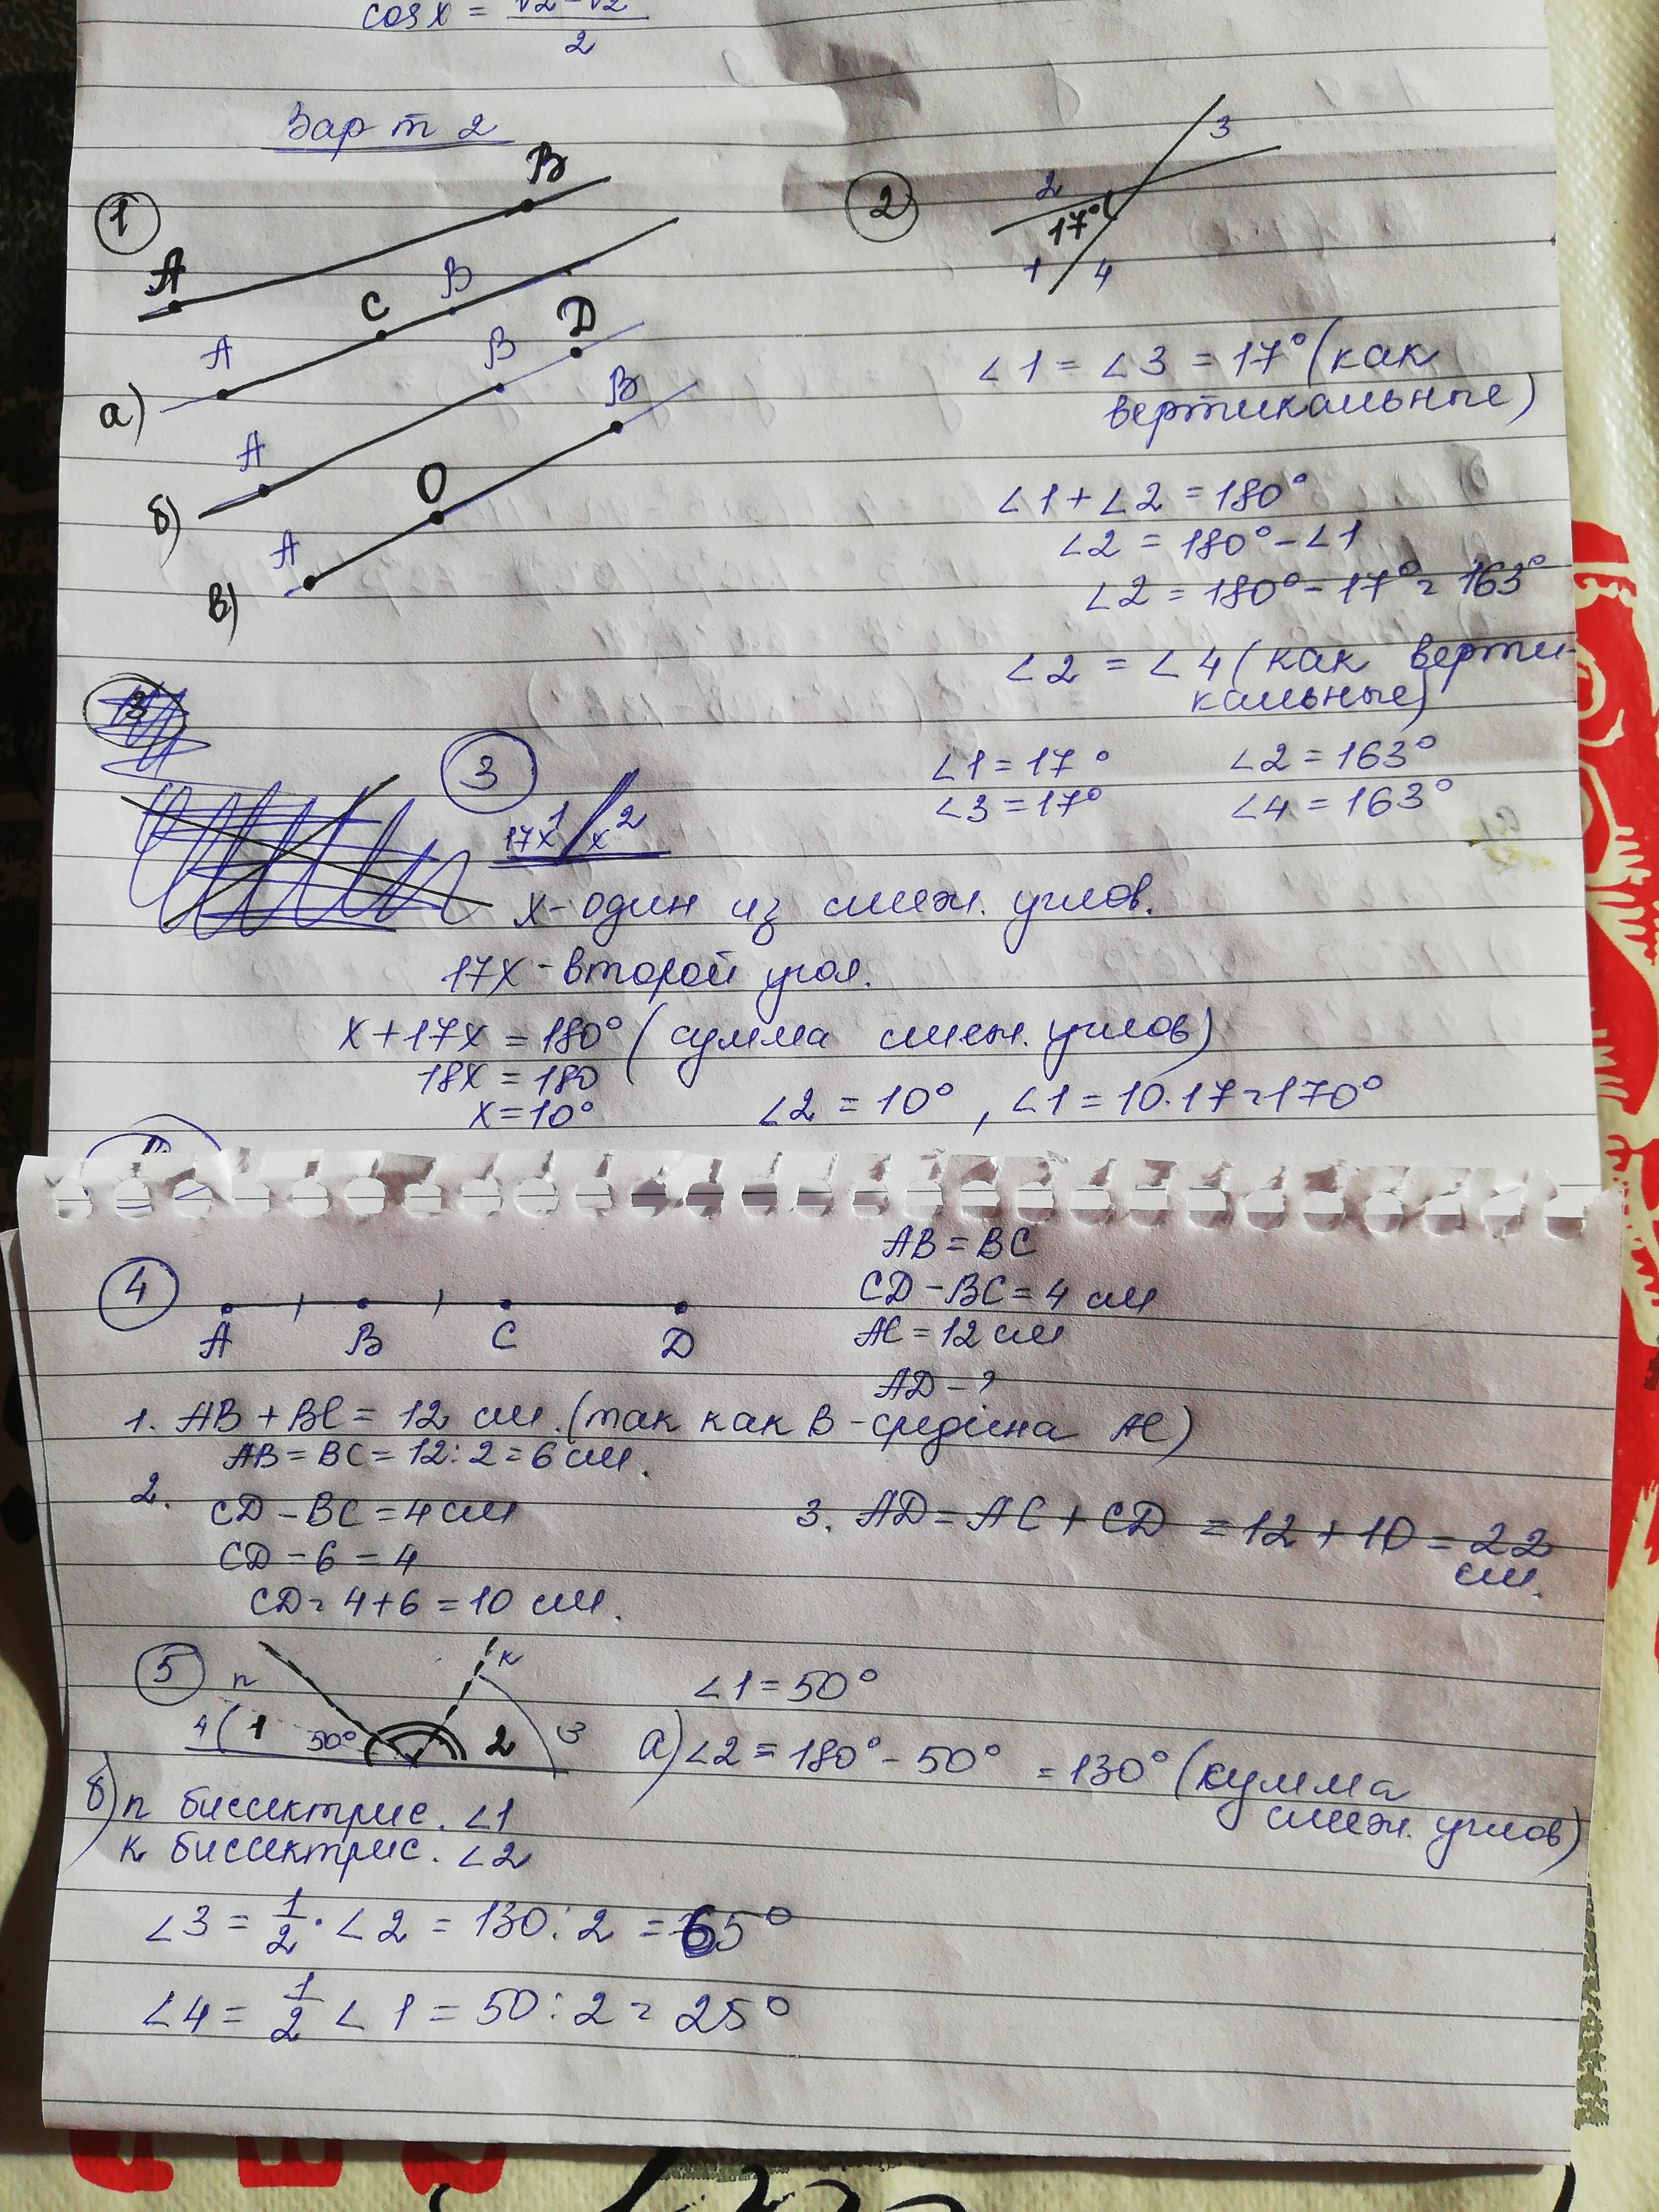 cos x = √2-√2 / 2
Вар т 2
1
A B
A C B
а)
A B D
б)
A O B
в)
2
2 3
17°
1 4
∠1 = ∠3 = 17° (как
вертикальные)
∠1 + ∠2 = 180°
∠2 = 180° - ∠1
∠2 = 180° - 17° = 163°
∠2 = ∠4 (как верти-
кальные)
∠1 = 17° ∠2 = 163°
∠3 = 17° ∠4 = 163°
3
17x 1 x 2
x - один из смеж. углов.
17x - второй угол.
x + 17x = 180° (сумма смеж. углов)
18x = 180
x = 10°
∠2 = 10°, ∠1 = 10·17 = 170°
4
A B C D
AB = BC
CD - BC = 4 см
AC = 12 см
AD - ?
1. AB + BC = 12 см. (так как B - средина AC)
AB = BC = 12 : 2 = 6 см.
2. CD - BC = 4 см
CD - 6 = 4
CD = 4 + 6 = 10 см.
3. AD = AC + CD = 12 + 10 = 22
см.
5
n к
4 1 50° 2 3
∠1 = 50°
а) ∠2 = 180° - 50° = 130° (сумма
смеж. углов)
б) n биссектрис. ∠1
к биссектрис. ∠2
∠3 = 1/2 · ∠2 = 130 : 2 = 65°
∠4 = 1/2 ∠1 = 50 : 2 = 25°